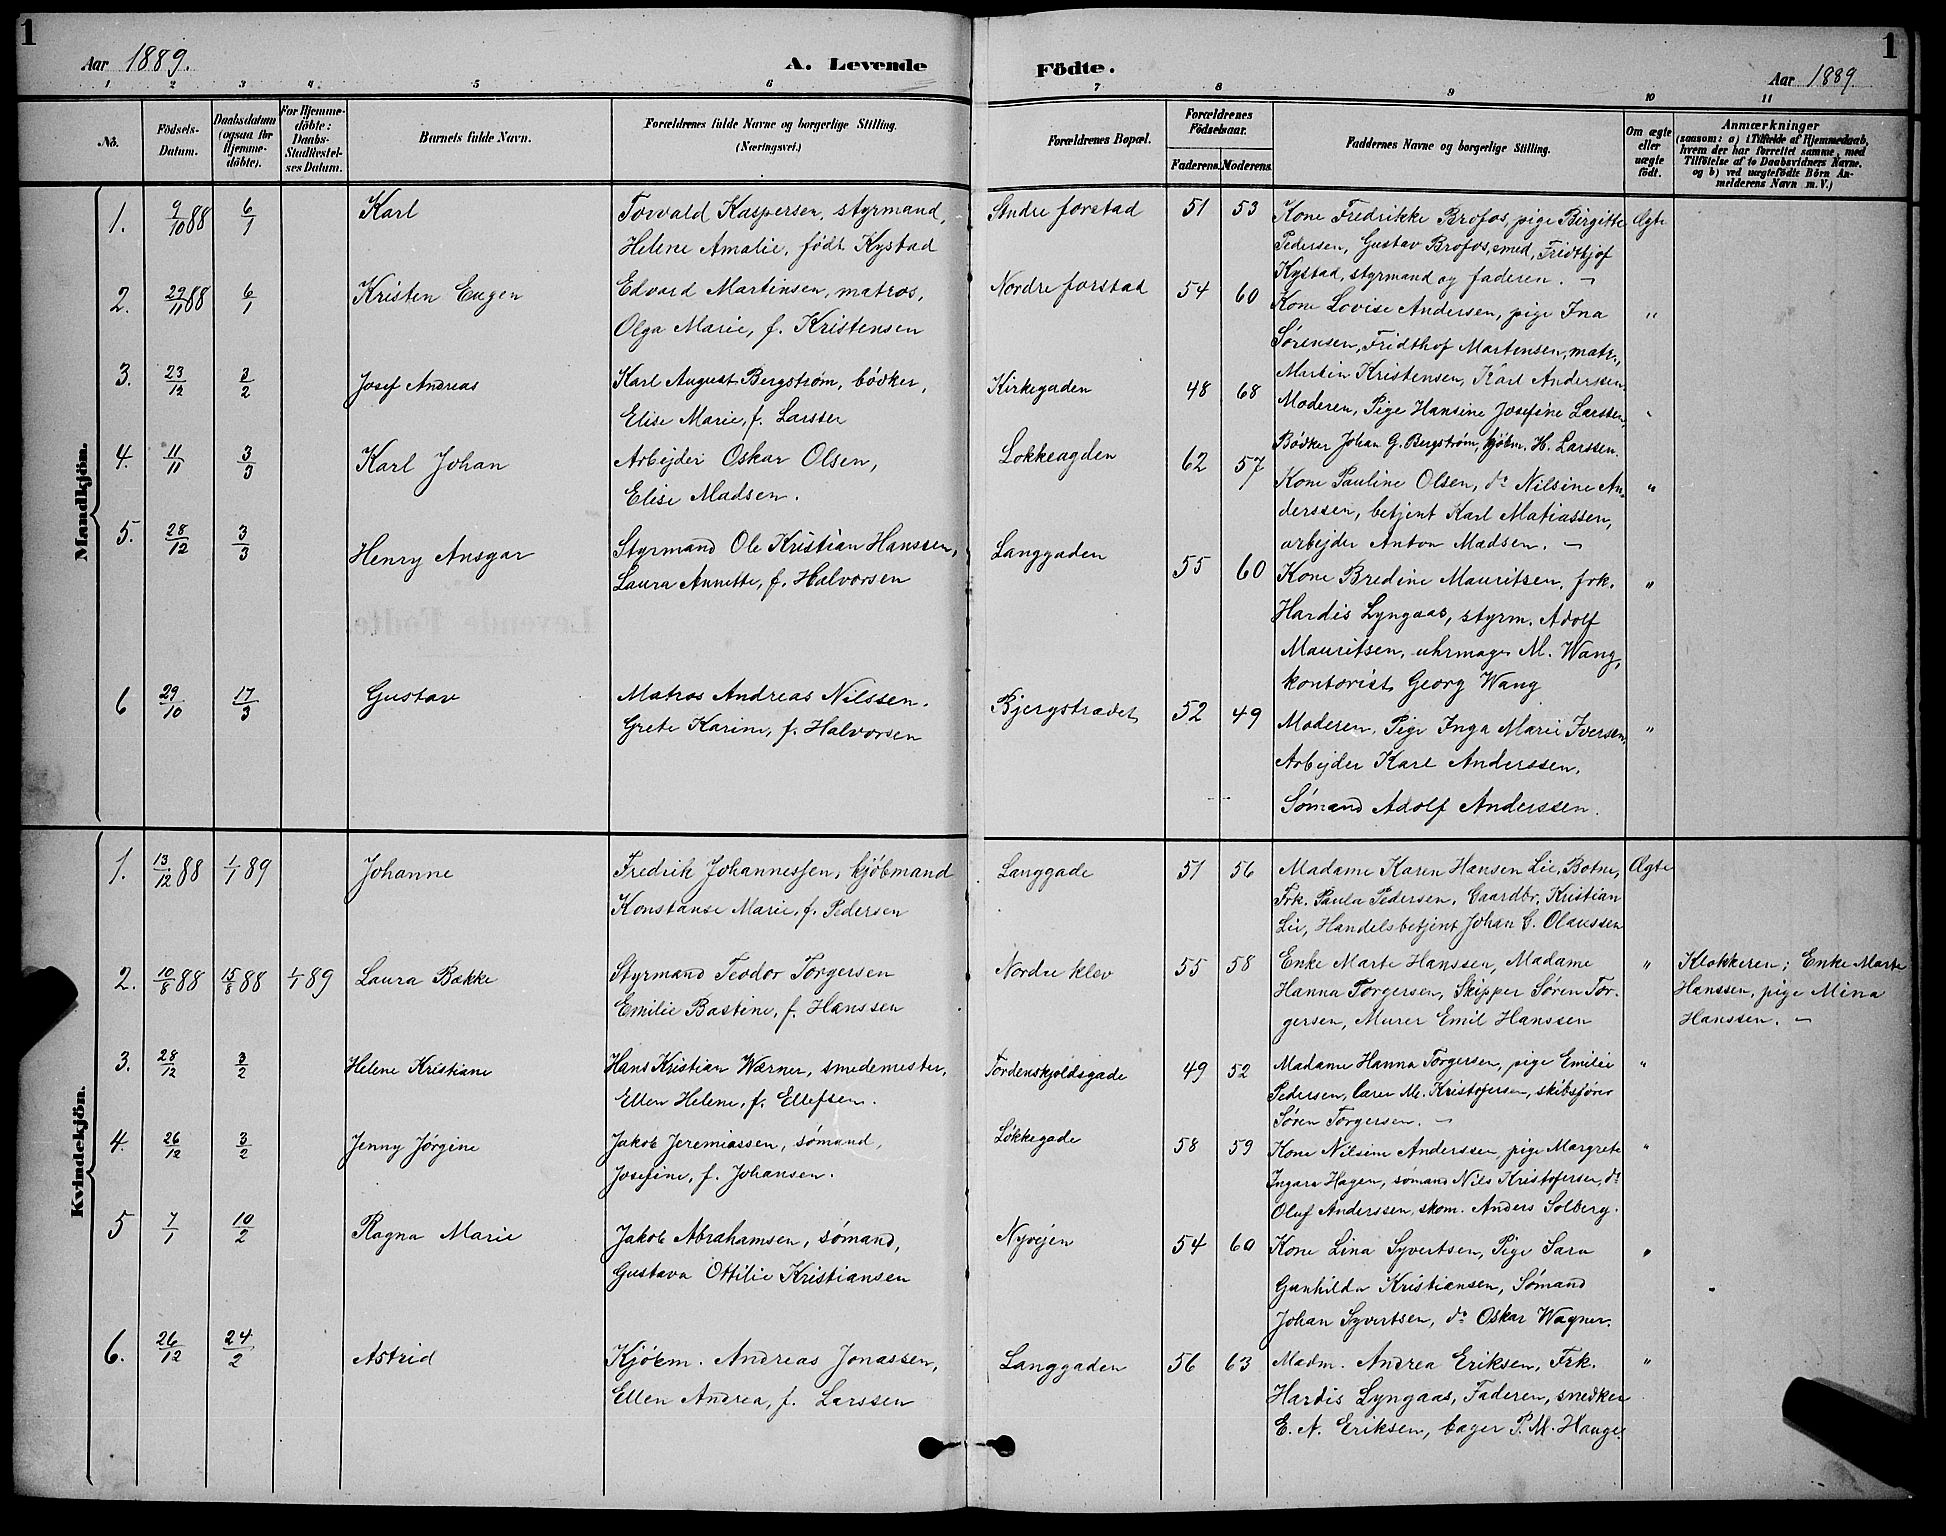 1
Aar 1889.
A. Levende
Födte.
Aar 1889
1
1 2 3 4 5 6 7 8 9 10 11
No.
Födsels-Datum.
Daabsdatum (ogsaa for Hjemme-döbte).
For Hjemme-döbte: Daabs-Stadfæstel-ses Datum.
Barnets fulde Navn.
Forældrenes fulde Navne og borgerlige Stilling. (Næringsvei.)
Forældrenes Bopæl.
Forældrenes Födselsaar.
Faderens. Moderens.
Faddernes Navne og borgerlige Stilling.
Om ægte eller uægte födt.
Anmærkninger
(saasom: a) i Tilfælde af Hjemmedaab,
hvem der har forrettet samme, med
Tilföielse af to Daabsvidners Navne.
og b) ved uægtefödte Börn An-
melderens Navn m. V.)
Mandkjön.
1. 9/10 88 6/1 Karl Torvald Kaspersen, styrmand, Søndre forstad 51 53 Kone Fredrikke Brofos, pige Birgitte Ægte
Helene Amalie, født Kystad Pedersen, Gustav Brofos, smed, Fridthjof
Kystad, styrmand og faderen. –
2. 29/11 88 6/1 Kristen Eugen Edvard Martinsen, matros, Nordre forstad 54 60 Kone Lovise Andersen, pige Ina "
Olga Marie, f. Kristensen Sørensen, Fridthof Martensen, matr.,
Martin Kristensen, Karl Anderssen.
3. 23/12 3/2 Josef Andreas Karl August Bergstrøm, bødker, Kirkegaden 48 68 Moderen, Pige Hansine Josefine Larssen, "
Elise Marie, f. Larssen Bødker Johan G. Bergstrøm, kjøbm. H. Larssen.
4. 11/11 3/3 Karl Johan Arbejder Oskar Olsen, Løkkeagden 62 57 Kone Pauline Olsen, do Nilsine An- "
Elise Madsen. derssen, betjent Karl Matiassen,
arbejder Anton Madsen. –
5. 28/12 3/3 Henry Ansgar Styrmand Ole Kristian Hanssen, Langgaden 55 60 Kone Bredine Mauritsen, frk. "
Laura Annette, f. Halvorsen Hardis Lyngaas, styrm. Adolf
Mauritsen, uhrmager M. Wang,
kontorist Georg Wang
6 29/10 17/3 Gustav Matros Andreas Nilssen. Bjergstrædet 52 49 Moderen, Pige Inga Marie Iversen, "
Grete Karine, f. Halvorsen Arbejder Karl Anderssen,
Sømand Adolf Anderssen.
Kvindekjön.
1. 13/12 88 1/1 89 Johanne Fredrik Johannessen, kjøbmand Langgade 51 56 Madame Karen Hansen Lie, Botne, Ægte
Konstanse Marie, f. Pedersen Frk. Paula Pedersen, Gaardbr. Kristian
Lie, Handelsbetjent Johan C. Olaussen
2. 10/8 88 15/8 88 1/1 89 Laura Bakke Styrmand Teodor Torgersen Nordre klev 55 58 Enke Marte Hanssen, Madame " Klokkeren; Enke Marte
Emilie Bastine, f. Hanssen Hanna Torgersen, Skipper Søren Tor- Hanssen, pige Mina
gersen, Murer Emil Hanssen Hanssen. –
3. 28/12 3/2 Helene Kristiane Hans Kristian Wærner, smedemester, Tordenskjoldsgade 49 52 Madame Hanna Torgersen, pige Emilie "
Ellen Helene, f. Ellefsen. Pedersen, lærer M. Kristofersen, skibsfører
Søren Torgersen. –
4. 26/12 3/2 Jenny Jørgine Jakob Jeremiassen, sømand, Løkkegade 58 59 Kone Nilsine Anderssen, pige Margrete "
Josefine, f. Johansen. Ingara Hagen, sømand Nils Kristofersen, do
Oluf Anderssen, skom. Anders Solberg.
5 7/1 10/2 Ragna Marie Jakob Abrahamsen, sømand, Nyvejen 54 60 Kone Lina Syvertsen, Pige Sara "
Gustava Ottilie Kristiansen Gunhilda Kristiansen, Sømand
Johan Syvertsen, do Oskar Wagner.
6. 26/12 24/2 Astrid Kjøbm. Andreas Jonassen, Langgaden 56 63 Madm. Andrea Eriksen, Frk. "
Ellen Andrea, f. Larssen Hardis Lyngaas, Faderen, snedker
E. A. Eriksen, bager P. M. Hauge.